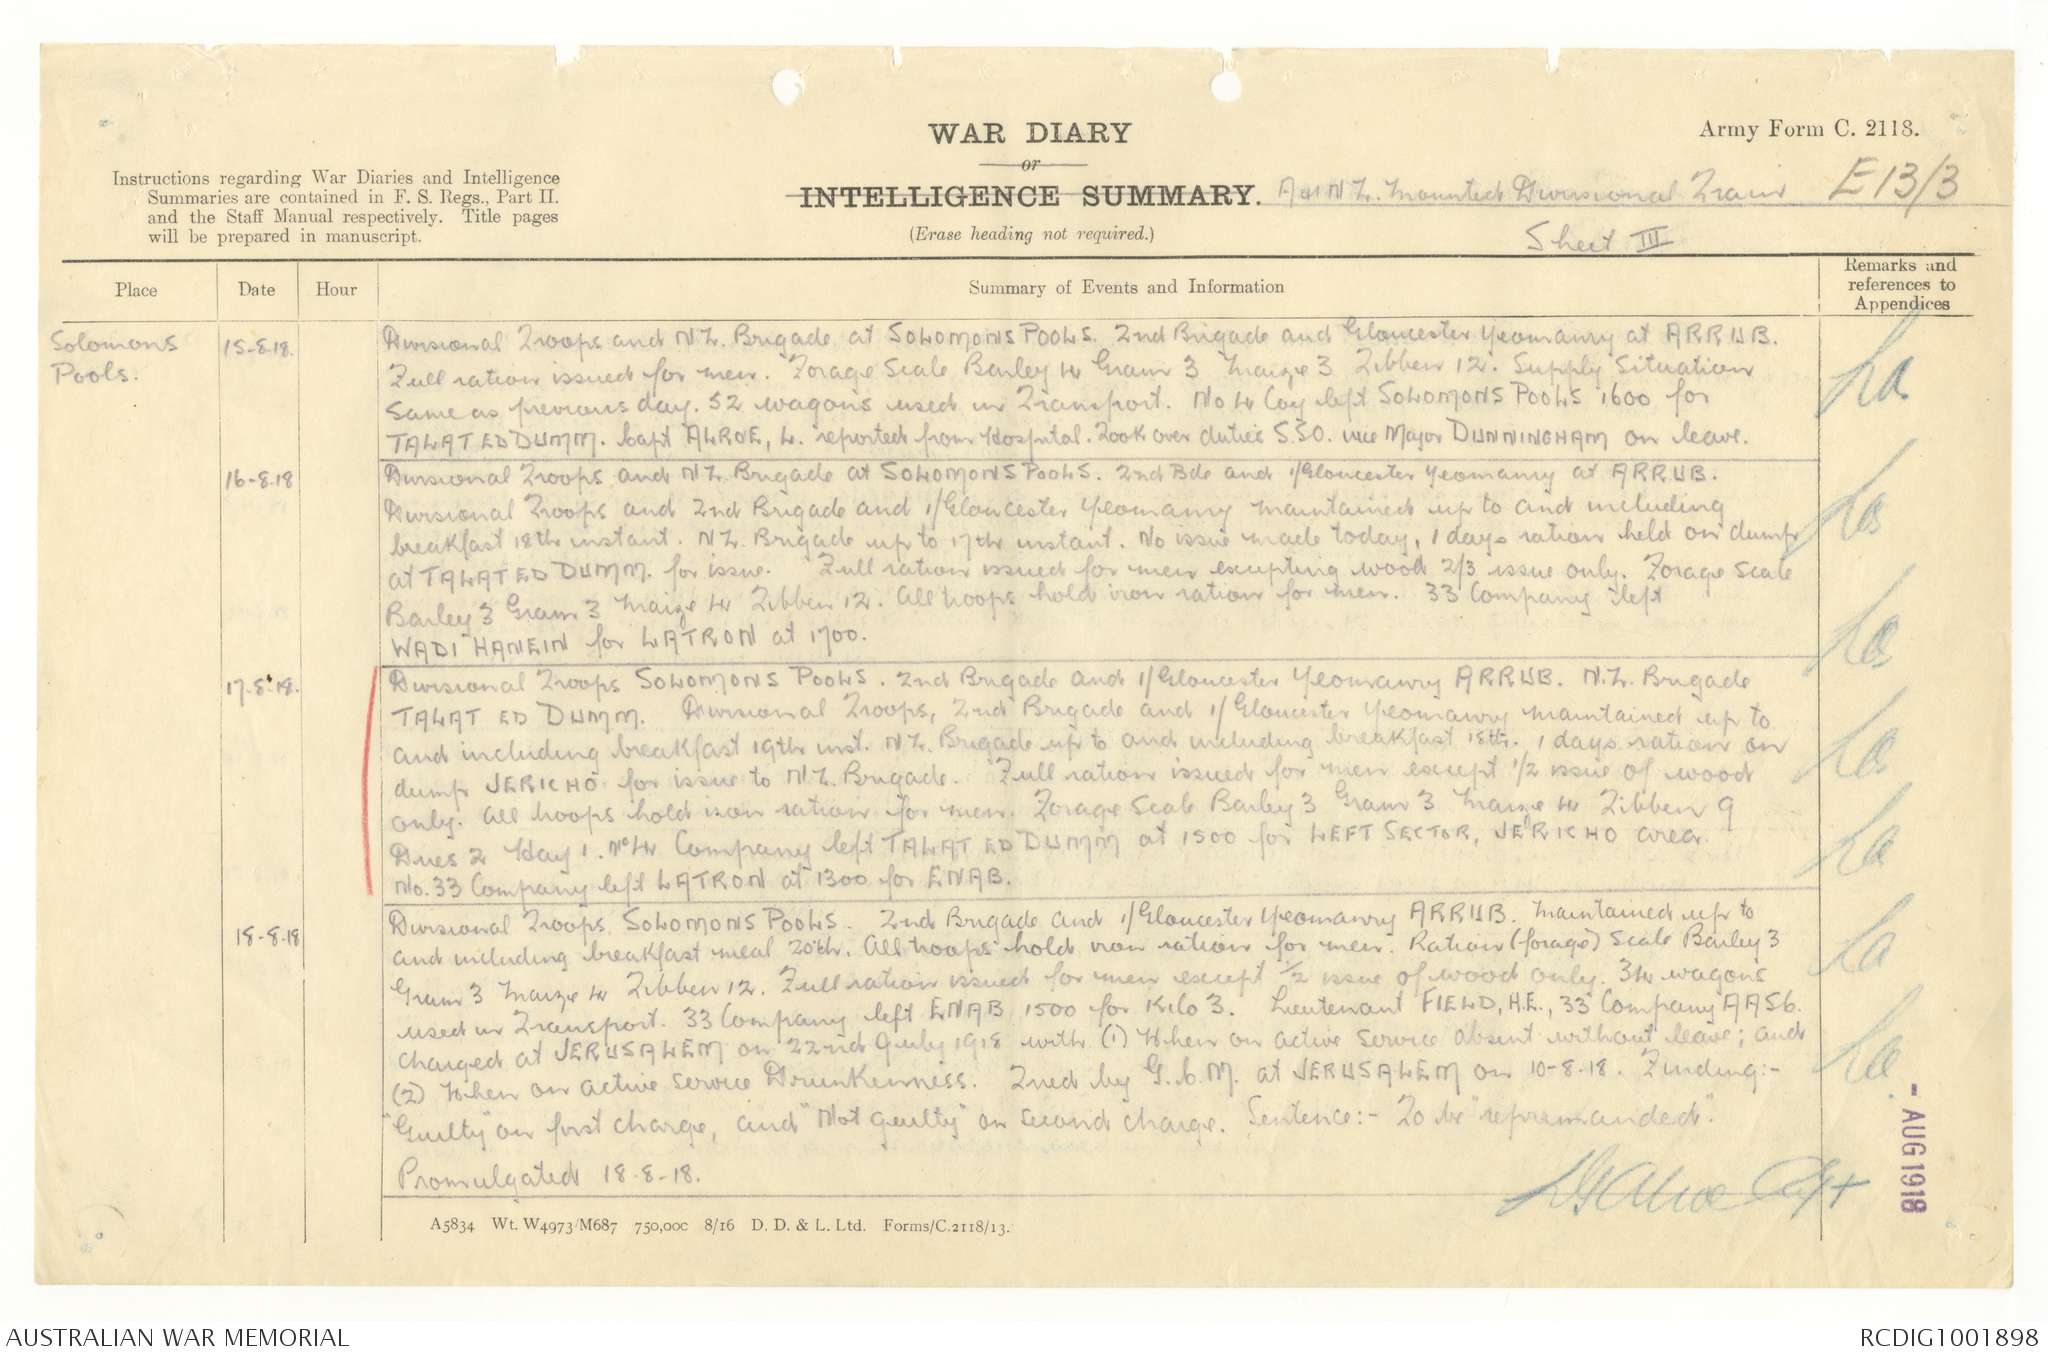 WAR DIARY
or
INTELLIGENCE SUMMARY.
(Erase heading not required.)
Army Form C. 2118.
Instructions regarding War Diaries and Intelligence
Summaries are contained in F. S. Regs., Part II.
and the Staff Manual respectively. Title pages
will be prepared in manuscript.
A & N Z. Mounted Divisional Train
E13/3
Sheet III
Place
Date
Hour
Summary of Events and Information
Remarks and
references to
Appendices
Solomons
Pools.
15-8-18.
Divisional Troops and N.Z. Brigade at SOLOMONS POOLS. 2nd Brigade and Gloucester Yeomanry at ARRUB.
Full ration issued for men. Forage Scale Barley 4 Gram 3 Maize 3 Tibben 12. Supply Situation
same as previous day. 52 wagons used in Transport. No 4 Coy left SOLOMONS POOLS 1600 for
TALAT ED DUMM. Capt ALROE, L. reported from Hospital. Took over duties S.S.O. vice Major DUNNINGHAM on leave.
16-8-18
Divisional Troops and N.Z. Brigade at SOLOMONS POOLS. 2nd Bde and 1/Gloucester Yeomanry at ARRUB.
Divisional Troops and 2nd Brigade and 1/Gloucester Yeomanry maintained up to and including
breakfast 18th instant. N.Z. Brigade up to 17th instant. No issue made today, 1 days ration held on dump
at TALAT ED DUMM. for issue. Full ration issued for men excepting wood 2/3 issue only. Forage Scale
Barley 3 Gram 3 Maize 4 Tibben 12. All troops hold iron ration for men. 33 Company left
WADI HANEIN for LATRON at 1700.
17-8-18.
Divisional Troops SOLOMONS POOLS. 2nd Brigade and 1/Gloucester Yeomanry ARRUB. N.Z. Brigade
TALAT ED DUMM. Divisional Troops, 2nd Brigade and 1/Gloucester Yeomanry maintained up to
and including breakfast 19th inst. N.Z. Brigade up to and including breakfast 18th. 1 days ration on
dump JERICHO for issue to N.Z. Brigade. Full ration issued for men except 1/2 issue of wood
only. All troops hold iron ration for men. Forage Scale Barley 3 Gram 3 Maize 4 Tibben 9
Dries 2 Hay 1. No 4 Company left TALAT ED DUMM at 1500 for LEFT SECTOR, JERICHO area.
No. 33 Company left LATRON at 1300 for ENAB.
18-8-18
Divisional Troops SOLOMONS POOLS. 2nd Brigade and 1/Gloucester Yeomanry ARRUB. Maintained up to
and including breakfast meal 20th. All troops hold iron ration for men. Ration (forage) Scale Barley 3
Gram 3 Maize 4 Tibben 12. Full ration issued for men except 1/2 issue of wood only. 34 wagons
used in Transport. 33 Company left ENAB 1500 for Kilo 3. Lieutenant FIELD, H.E., 33 Company AASC.
charged at JERUSALEM on 22nd July 1918 with (1) When on active service absent without leave; and
(2) When on active service Drunkenness. Tried by G.C.M. at JERUSALEM on 10-8-18. Finding:-
"Guilty" on first charge, and "Not guilty" on second charge. Sentence:- To be "reprimanded".
Promulgated 18-8-18.
- AUG 1918
A5834 Wt. W4973/M687 750,000 8/16 D. D. & L. Ltd. Forms/C.2118/13.
AUSTRALIAN WAR MEMORIAL
RCDIG1001898